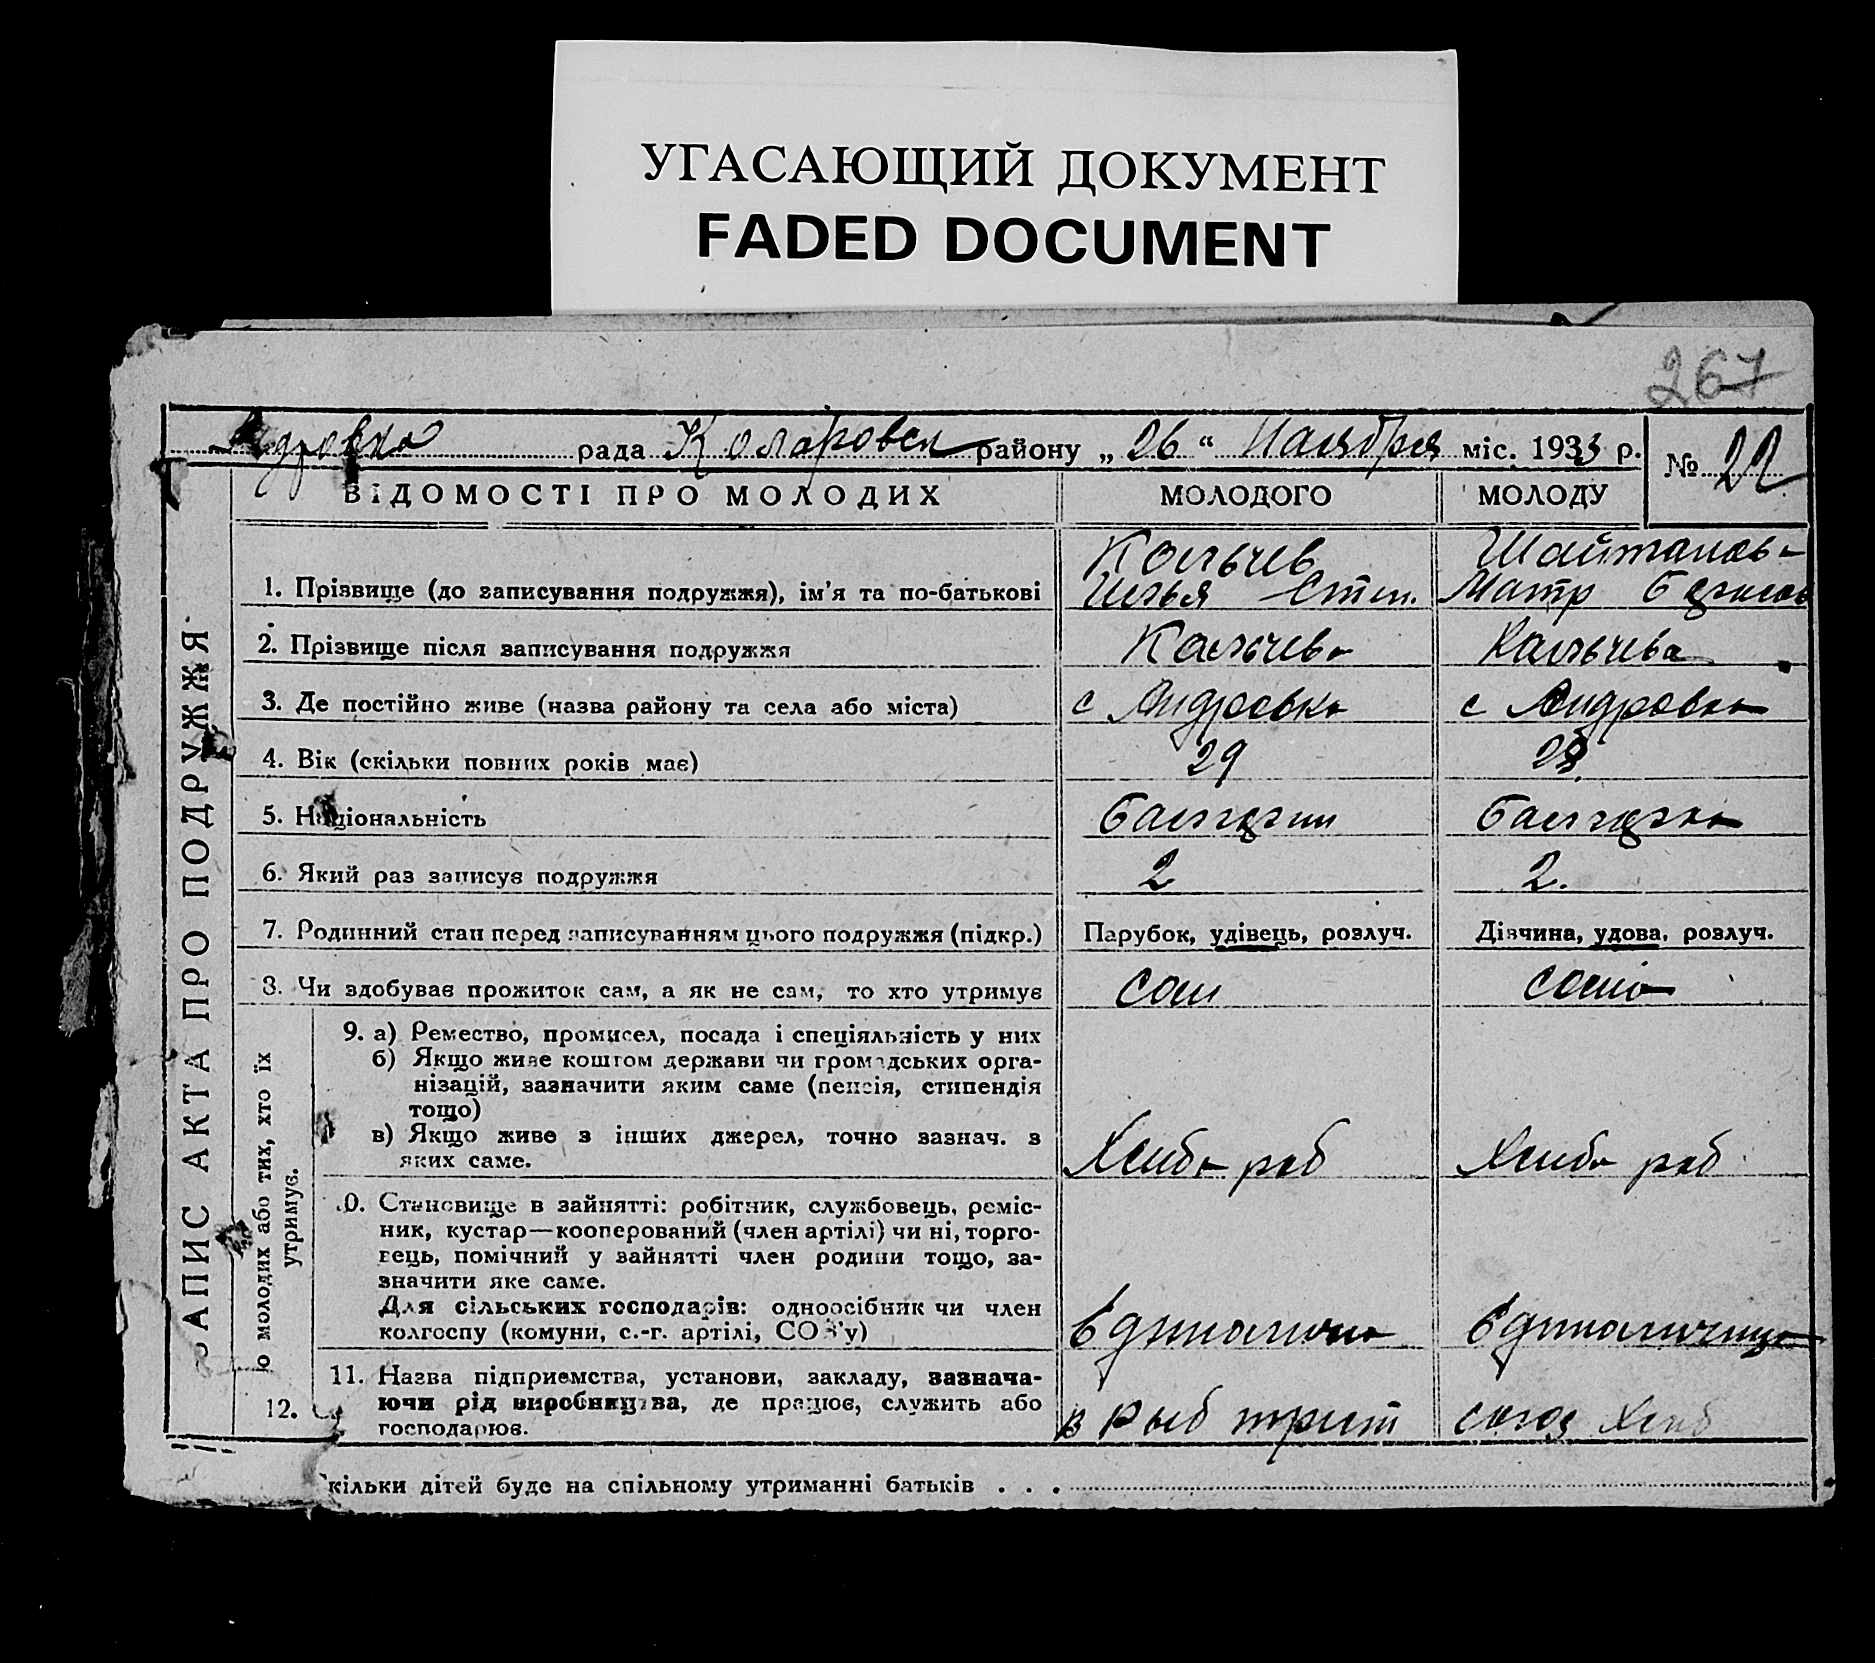 УГАСАЮЩИЙ ДОКУМЕНТ
FADED DOCUMENT
267
рада Коларовск району „26“ Наября міс. 1933 р. № 22
ВІДОМОСТІ ПРО МОЛОДИХ МОЛОДОГО МОЛОДУ
ЗАПИС АКТА ПРО ПОДРУЖЖЯ
1. Прізвище (до записування подружжя), ім'я та по-батькові Кольчев Илья Степ. Шайтанова Матр
2. Прізвище після записування подружжя Кальчева Кальчева
3. Де постійно живе (назва району та села або міста) с Андровка с Андровка
4. Вік (скільки повних років має) 29
5. Національність Балгарин Балгарка
6. Який раз записує подружжя 2 2.
7. Родинний стан перед записуванням цього подружжя (підкр.) Парубок, удівець, розлуч. Дівчина, удова, розлуч.
8. Чи здобуває прожиток сам, а як не сам, то хто утримує сам сама
ю молодих або тих, хто їх
утримує.
9. а) Ремество, промисел, посада і спеціяльність у них
б) Якщо живе коштом держави чи громадських орга-
нізацій, зазначити яким саме (пенсія, стипендія
тощо)
в) Якщо живе з інших джерел, точно зазнач. з
яких саме. Хлиба раб Хлиба раб
10. Становище в зайнятті: робітник, службовець, реміс-
ник, кустар—кооперований (член артілі) чи ні, торго-
вець, помічний у зайнятті член родини тощо, за-
значити яке саме.
Для сільських господарів: одноосібник чи член
колгоспу (комуни, с.-г. артілі, СОЗ'у)
11. Назва підприємства, установи, закладу, зазнача-
ючи рід виробництва, де працює, служить або
господарює. в Рыб трест союз Хлиб
12.
кільки дітей буде на спільному утриманні батьків . . .